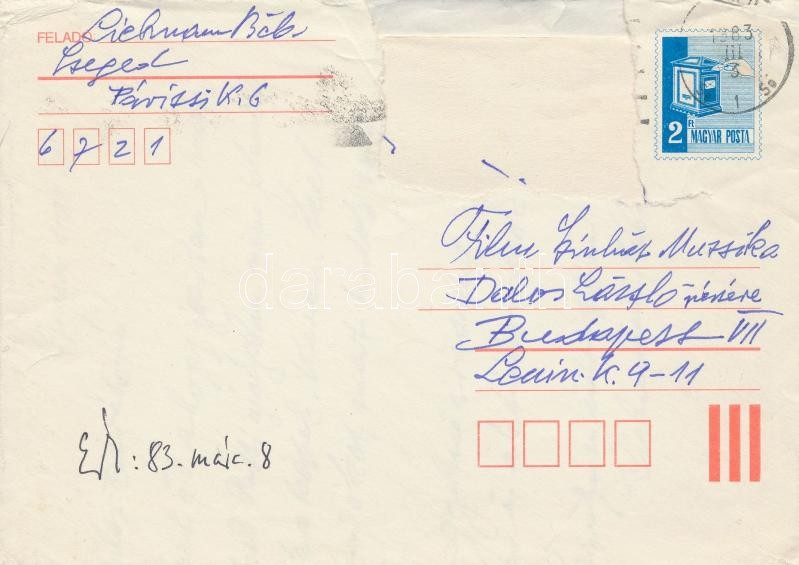 FELADÓ Liebmann Béla
Szeged
Párizsi K. 6
6721
1983
III
3
1
2 Ft
MAGYAR POSTA
Film Színház Muzsika
Dalos László részére
Budapest VII
Lenin. K. 9-11
darabanth
: 83. márc. 8